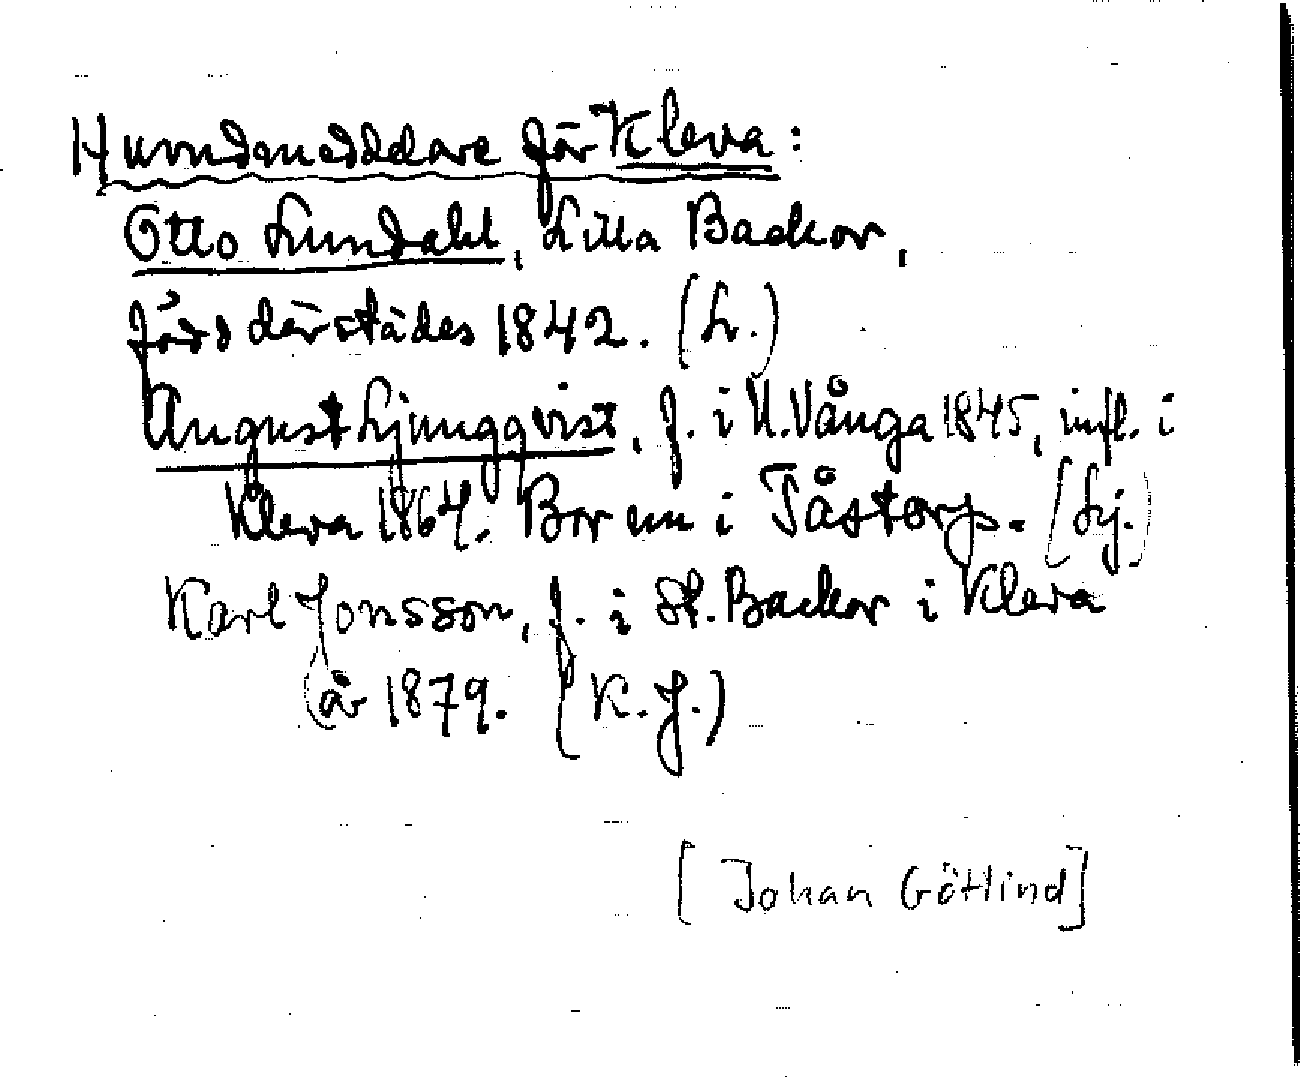 Huvudmeddelare för Kleva:
Otto Lundahl, Lilla Backor,
född därstädes 1842. (L.)
August Ljungqvist, f. i N. Vånga 1845, infl. i
Kleva 1864. Bor nu i Tåstorp. (Lj.)
Karl Jonsson, f. i St. Backor i Kleva
år 1879. (K. J.)
[Johan Götlind]